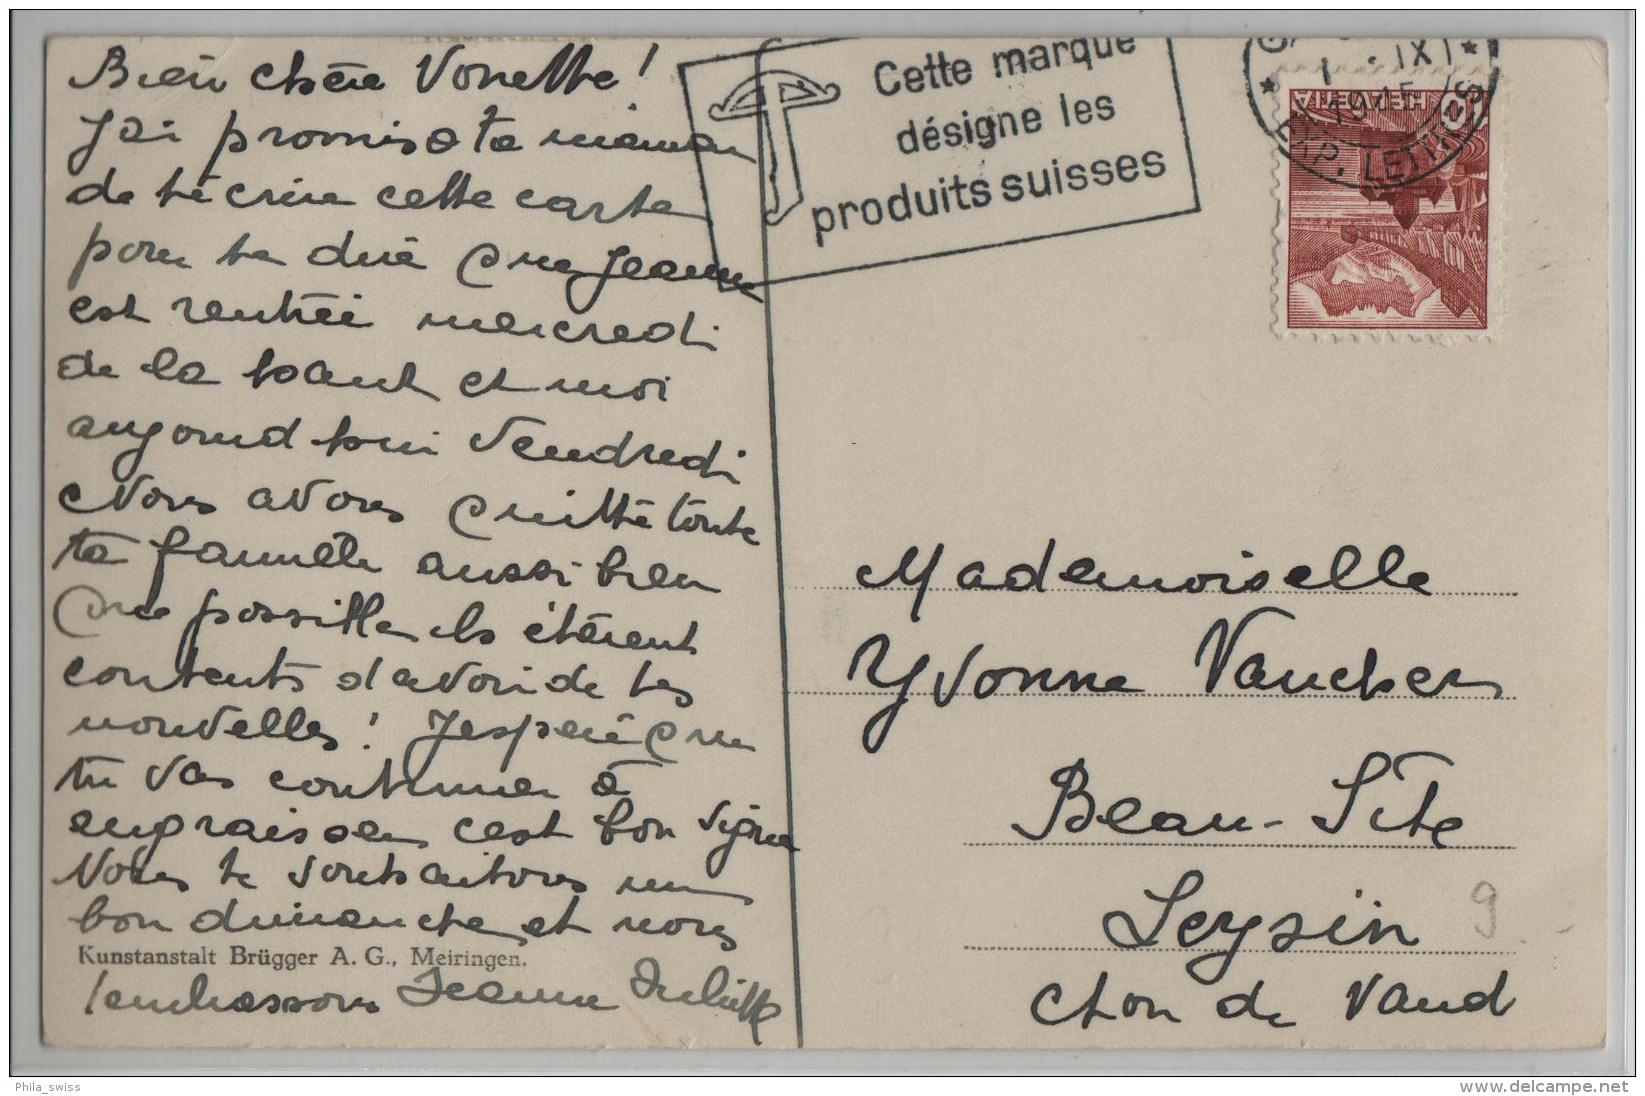 Bien chère Vonette!
J'ai promis a ta maman
de t'écrire cette carte
pour te dire que Jeanne
est rentrée mercredi
de la haut et moi
aujourd'hui Vendredi
Nous avons quitté toute
ta famille aussi bien
que possible ils étèrent
contents d'avoir de tes
nouvelles! J'espère que
tu vas continuer à
engraisser c'est bon signe
Nous te souhaitons un
bon dimanche et nous
Kunstanstalt Brügger A. G., Meiringen.
t'embrassons Jeanne Juliette
Cette marque
désigne les
produits suisses
1. IX
1945
EXP. LETTRES
HELVETIA
Mademoiselle
Yvonne Vaucher
Beau-Site
Leysin
Cton de Vaud
9
Phila_swiss
www.delcampe.net